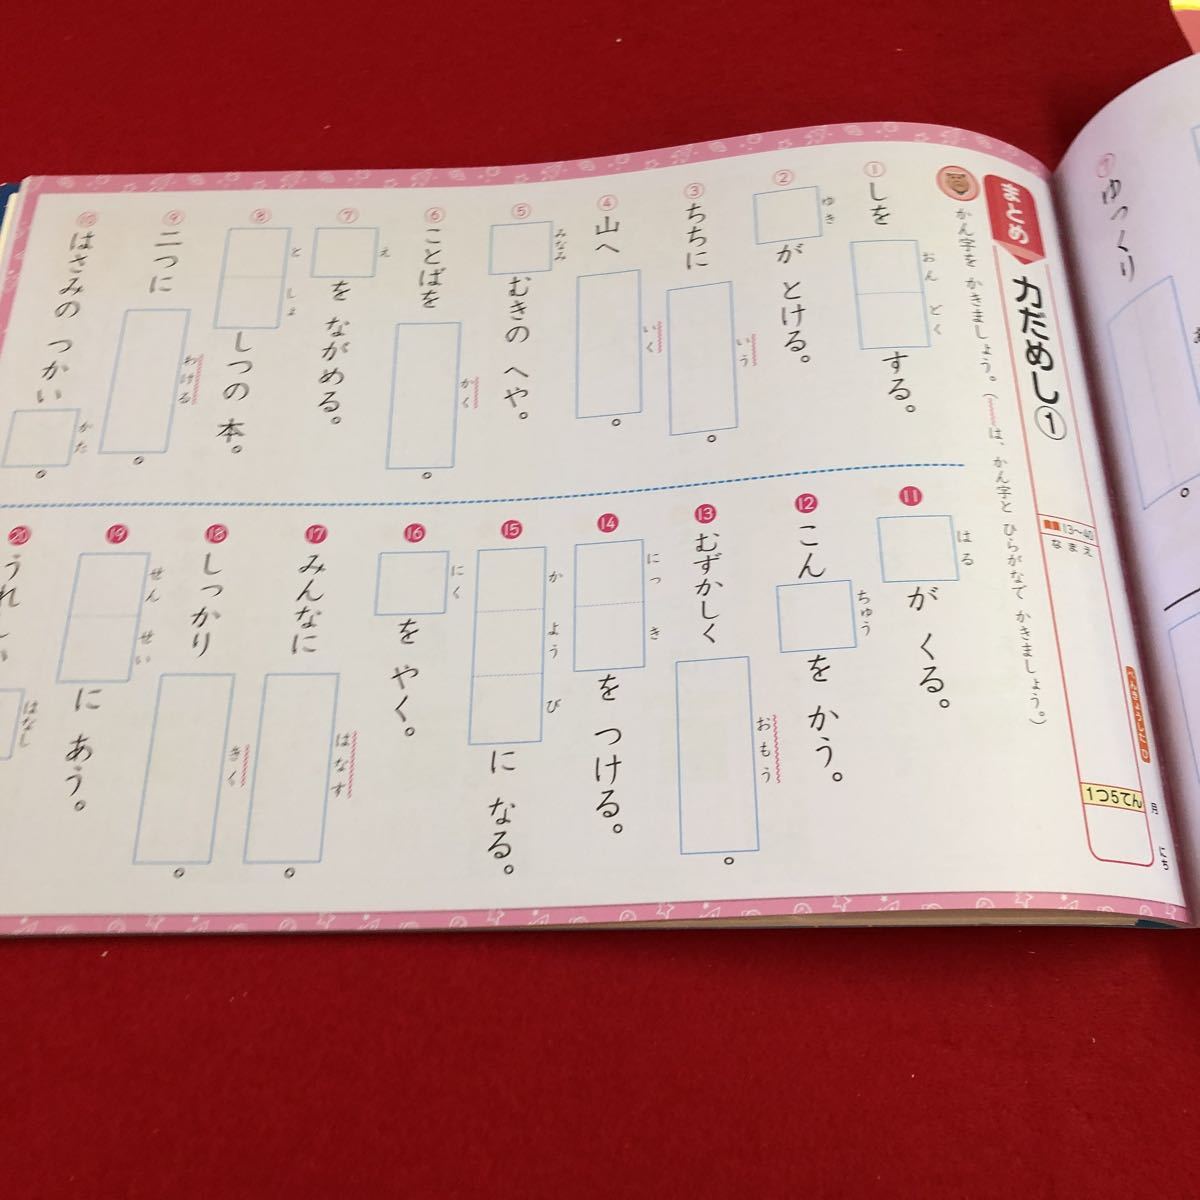 まとめ
力だめし①
13〜40
なまえ
1つ5てん
月
にち
かん字を かきましょう。(　は、かん字と ひらがなで かきましょう。)
①しを
おんどく
する。
②
ゆき
が とける。
③ちちに
いう
。
④山へ
いく
。
⑤
みなみ
むきの へや。
⑥ことばを
かく
。
⑦
え
を ながめる。
⑧
としょ
しつの 本。
⑨二つに
わける
。
⑩はさみの つかい
かた
。
⑪
はる
が くる。
⑫こん
ちゅう
を かう。
⑬むずかしく
おもう
。
⑭
にっき
を つける。
⑮
かようび
に なる。
⑯
にく
を やく。
⑰みんなに
はなす
。
⑱しっかり
きく
。
⑲
せんせい
に あう。
⑳うれしい
はなし
⑦ゆっくり
。